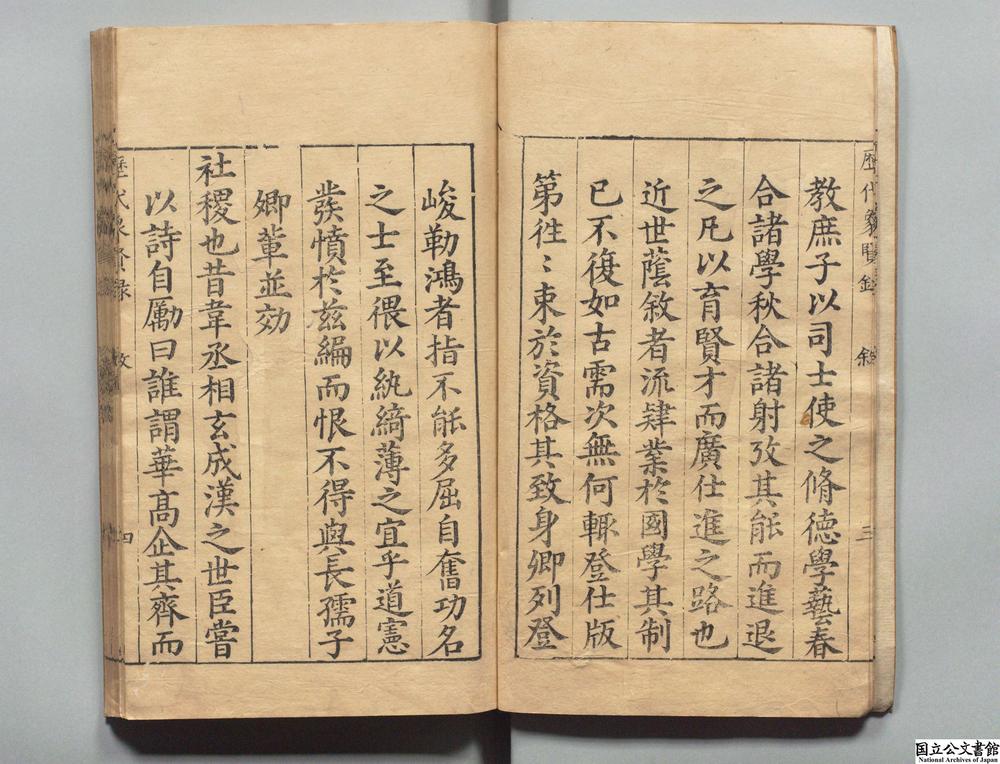 歴代象賢録 敘 三
教庶子以司士使之脩德學藝春
合諸學秋合諸射攷其能而進退
之凡以育賢才而廣仕進之路也
近世蔭敘者流肄業於國學其制
已不復如古需次無何輙登仕版
第徃〻束於資格其致身卿列登
峻勒鴻者指不能多屈自奮功名
之士至猥以紈綺薄之宜乎道憲
發憤於茲編而恨不得與長孺子
卿軰並効
社稷也昔韋丞相玄成漢之世臣嘗
以詩自勵曰誰謂華髙企其齊而
歷代象賢録 敘 四
国立公文書館
National Archives of Japan